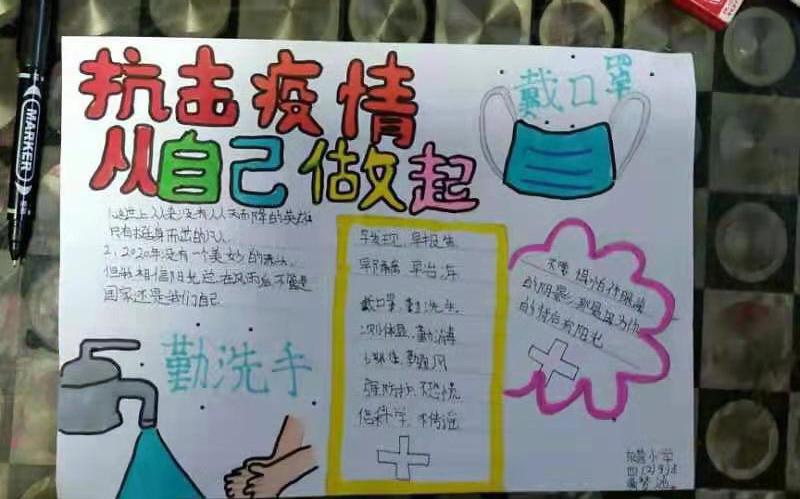 抗击疫情
从自己做起
戴口罩
1、世上从来没有从天而降的英雄
只有挺身而出的凡人
2、2020年没有一个美妙的
但我相信阳光总在风雨后不管是
国家还是我们自己
早发现，早报告
早隔离，早治疗
戴口罩，勤洗手
测体温，勤消毒
勤通风
强防护，不恐慌
信科学，不传谣
不要惧怕你眼前
的阴影，那是因为你
的背后有阳光
勤洗手
小学
MARKER